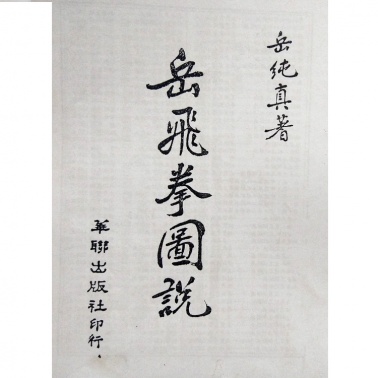 岳純真著
岳飛拳圖說
華聯出版社印行.